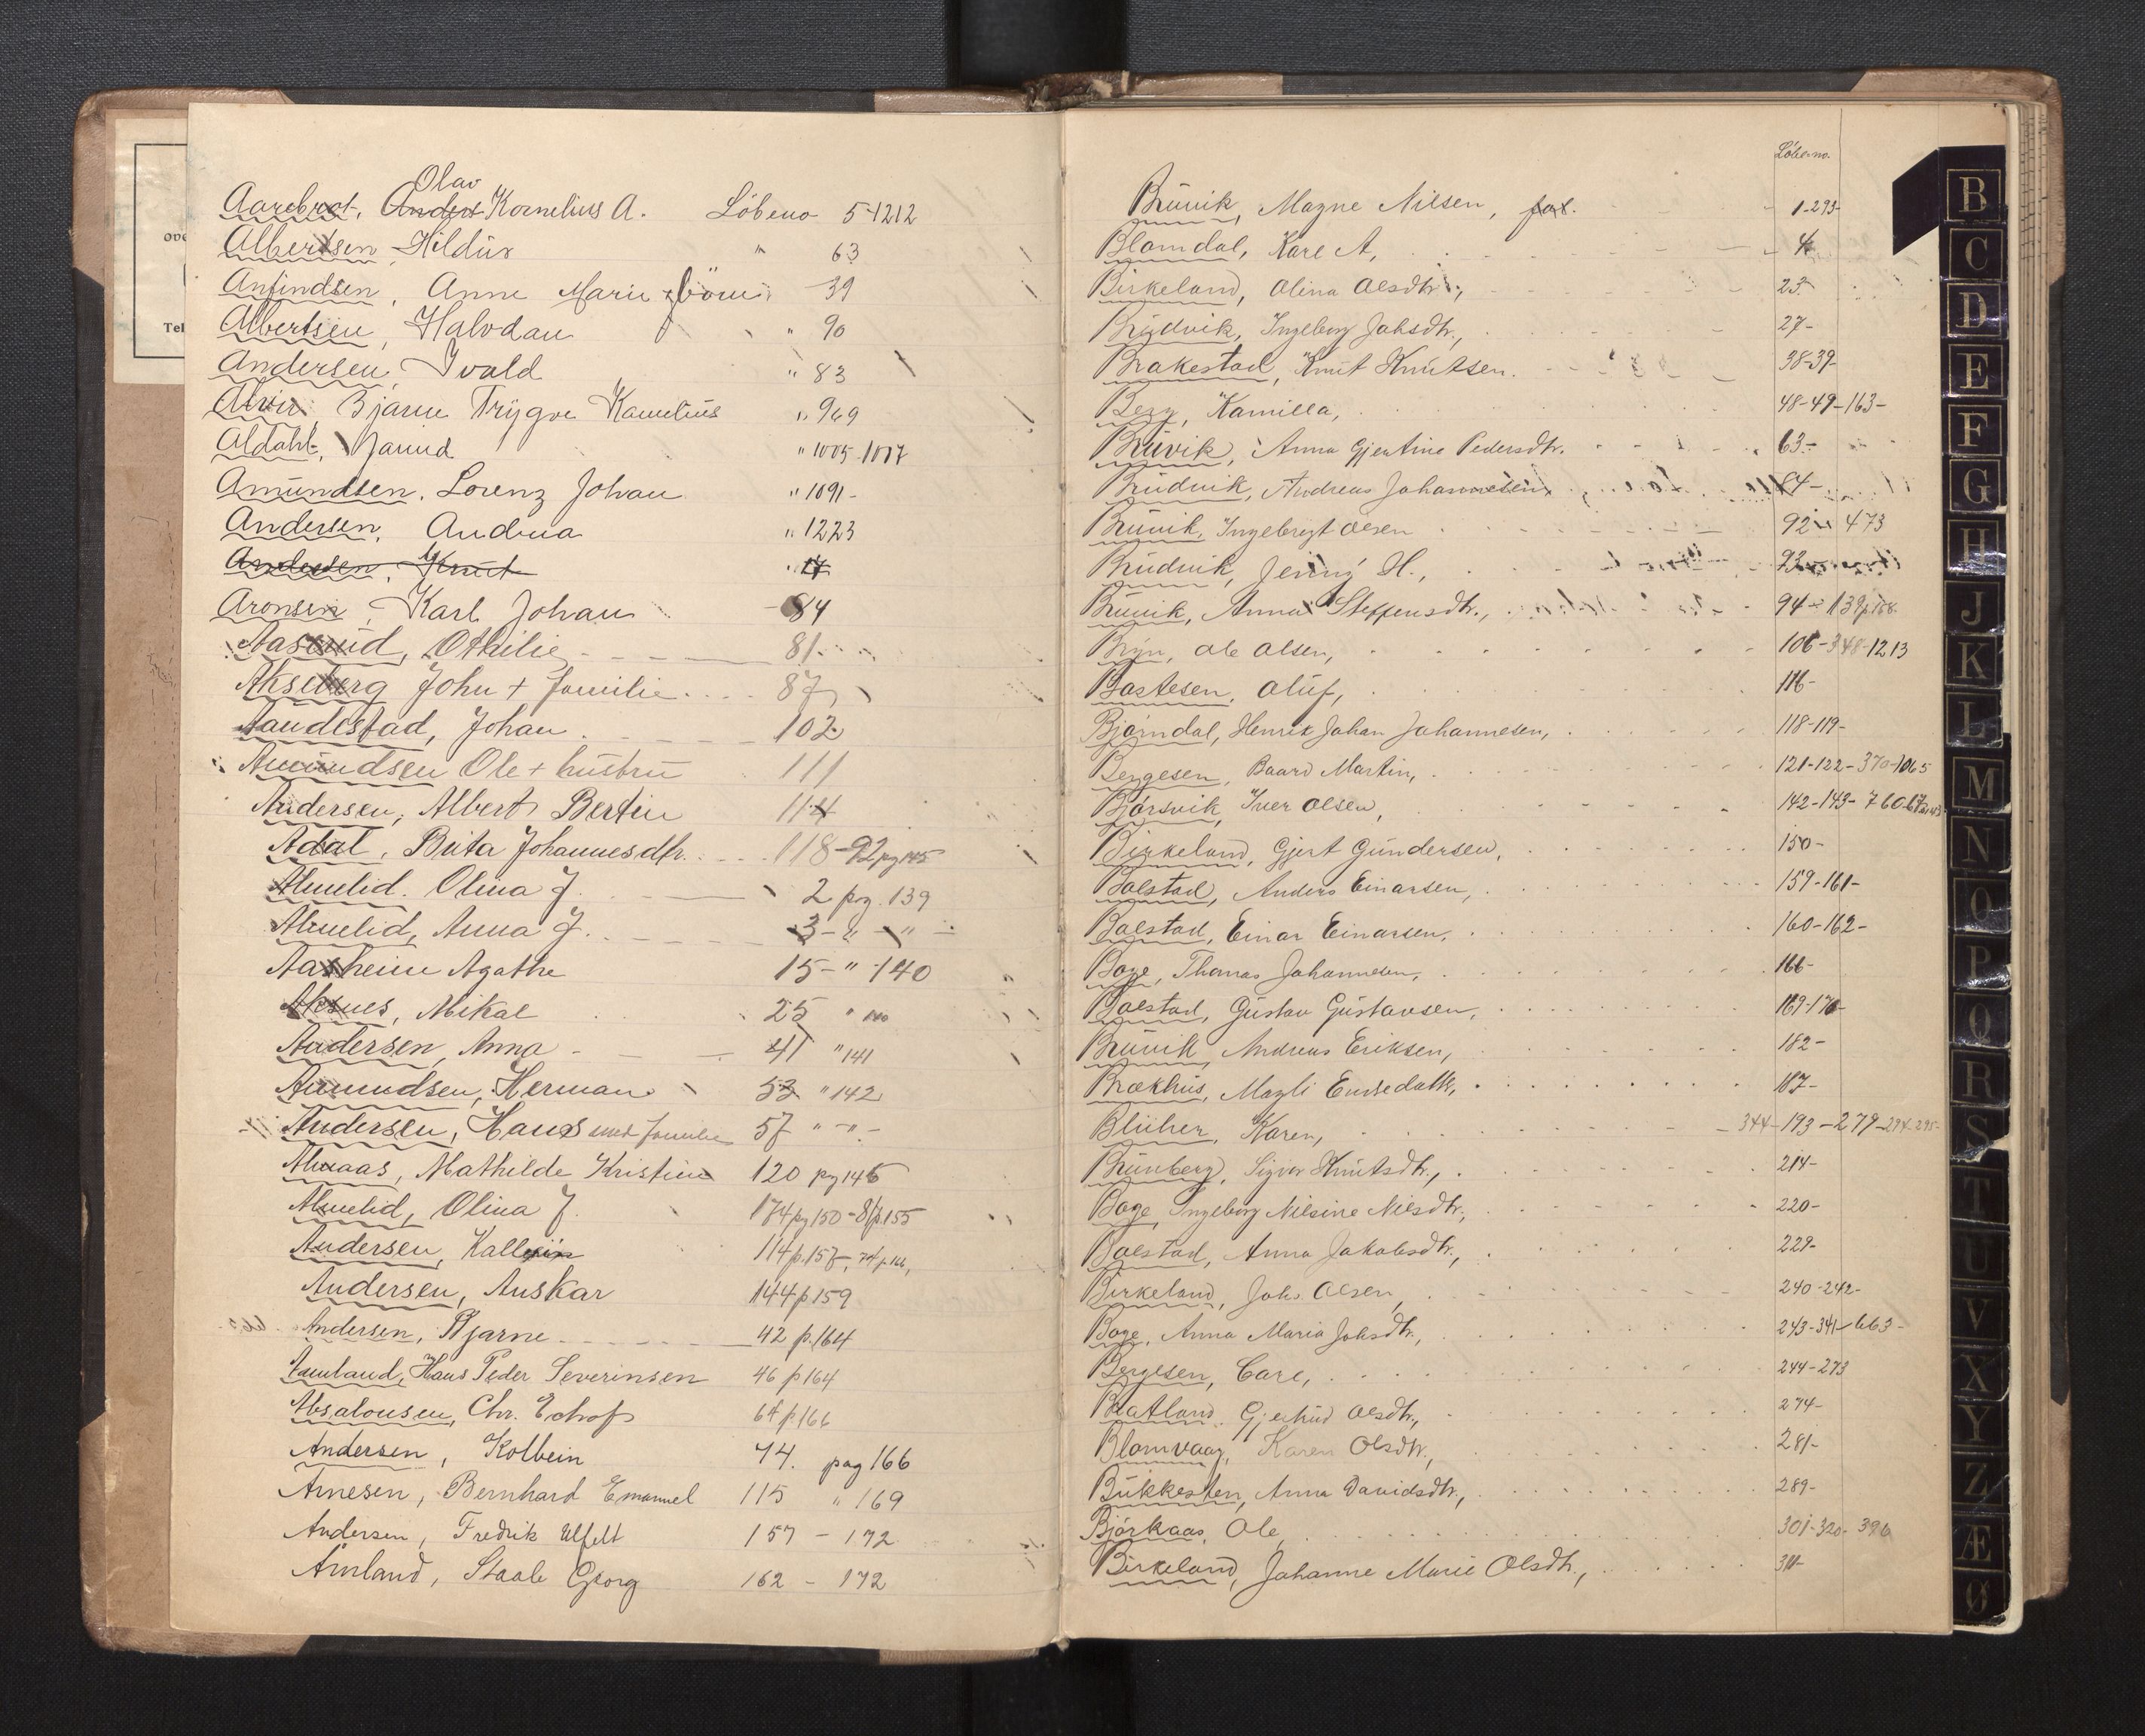 Olav
Aarebrot, Anders Kornelius A. Löbeno 5-1212
Albertsen Hildur " 63
Anfindsen, Anne Marie 39
Albertsen, Halvdan " 90
Andersen, Ivald " 83
Alvir Bjarne Trygve Kornelius " 969
Aldahl, Jarund " 1005-1017
Amundsen, Lorenz Johan " 1091-
Andersen, Andrea " 1223
Andersen, Knut
Aronsen, Karl Johan 84
Aasrud, Othilie 81
Akseberg John + familie 87
Aandestad, Johan 102
Amundsen Ole + hustru 111
Andersen, Albert Bertin 114
Adal, Brita Johannesdtr. 118-92 pg 145
Almelid. Olina J. 2 pag. 139
Almelid, Anna J. 3 - " - " -
Aasheim Agathe 15 - " 140
Aksnes, Mikal 25 "
Andersen, Anna 41 " 141
Amundsen, Herman 53 " 142
Andersen, Hans med familie 57 " - " -
Almaas, Mathilde Kristine 120 pg 146
Almelid, Olina J. 174 pg 150 - 81 p 155
Andersen, 114 p. 157
Andersen, Anskar 144 p 159
Andersen, Bjarne 42 p. 164
Aamland, Hans Peder Severinsen 46 p 164
Absalonsen, Chr. 64 p 166
Andersen, Kolbein 74. pag 166
Arnesen, Bernhard Emanuel 115 " 169
Andersen, Fredrik Ulfelt 157 - 172
Åmland, Staale Georg 162 - 172
Löbeno.
Bruvik, Magne Nilsen, 1-293-
Blomdal, Kare A, 4
Birkeland, Olina Olsdtr., 23
Brudvik, Ingeborg Johsdtr., 27-
Brakestad, Knut Knutsen. 38-39-
Berg, Kamilla, 48-49-163-
Bruvik, Anna Gjertine Pedersdtr. 63-
Brudvik, Andreas Johannesen, 84-
Bruvik, Ingebrigt Olsen 92 473
Brudvik, Jenny H., 93
Bruvik, Anna Steffensdtr., 94-139 p 158
Bryn, Ole Olsen, 106-348-1213
Bastesen, Oluf, 116-
Bjørndal, Henrik Johan Johannesen, 118-119-
Bergesen, Baard Martin, 121-122-370-1065
Bjørsvik, Iver Olsen, 142-143-760
Birkeland, Gjert Gundersen, 150-
Bolstad, Anders Einarsen, 159-161-
Bolstad, Einar Einarsen, 160-162-
Boge, Thomas Johannesen, 166-
Bolstad, Gustav Gustavsen, 169-170-
Bruvik, Andreas Eriksen, 182-
Brækhus, Magli 187-
Blüher, Karen, 344-193-279-294-295-
Brunberg, Sigvor Knutsdtr., 214-
Boge, Ingeborg Nilsine Nilsdtr., 220-
Bolstad, Anna Jakobsdtr., 229-
Birkeland, Johs. Olsen, 240-242-
Boge, Anna Maria Johsdtr., 243-341-663-
Bergesen, Carl, 244-273
Bratland, Gjertrud Olsdtr., 274-
Blomvaag, Karen Olsdtr., 281-
Bukkesten, Anna Davidsdtr., 289-
Bjørkaas, Ole, 301-320-396
Birkeland, Johanne Marie Olsdtr., 311-
B
C
D
E
F
G
H
J
K
L
M
N
O
P
Q
R
S
T
U
V
X
Y
Z
Æ
Ø